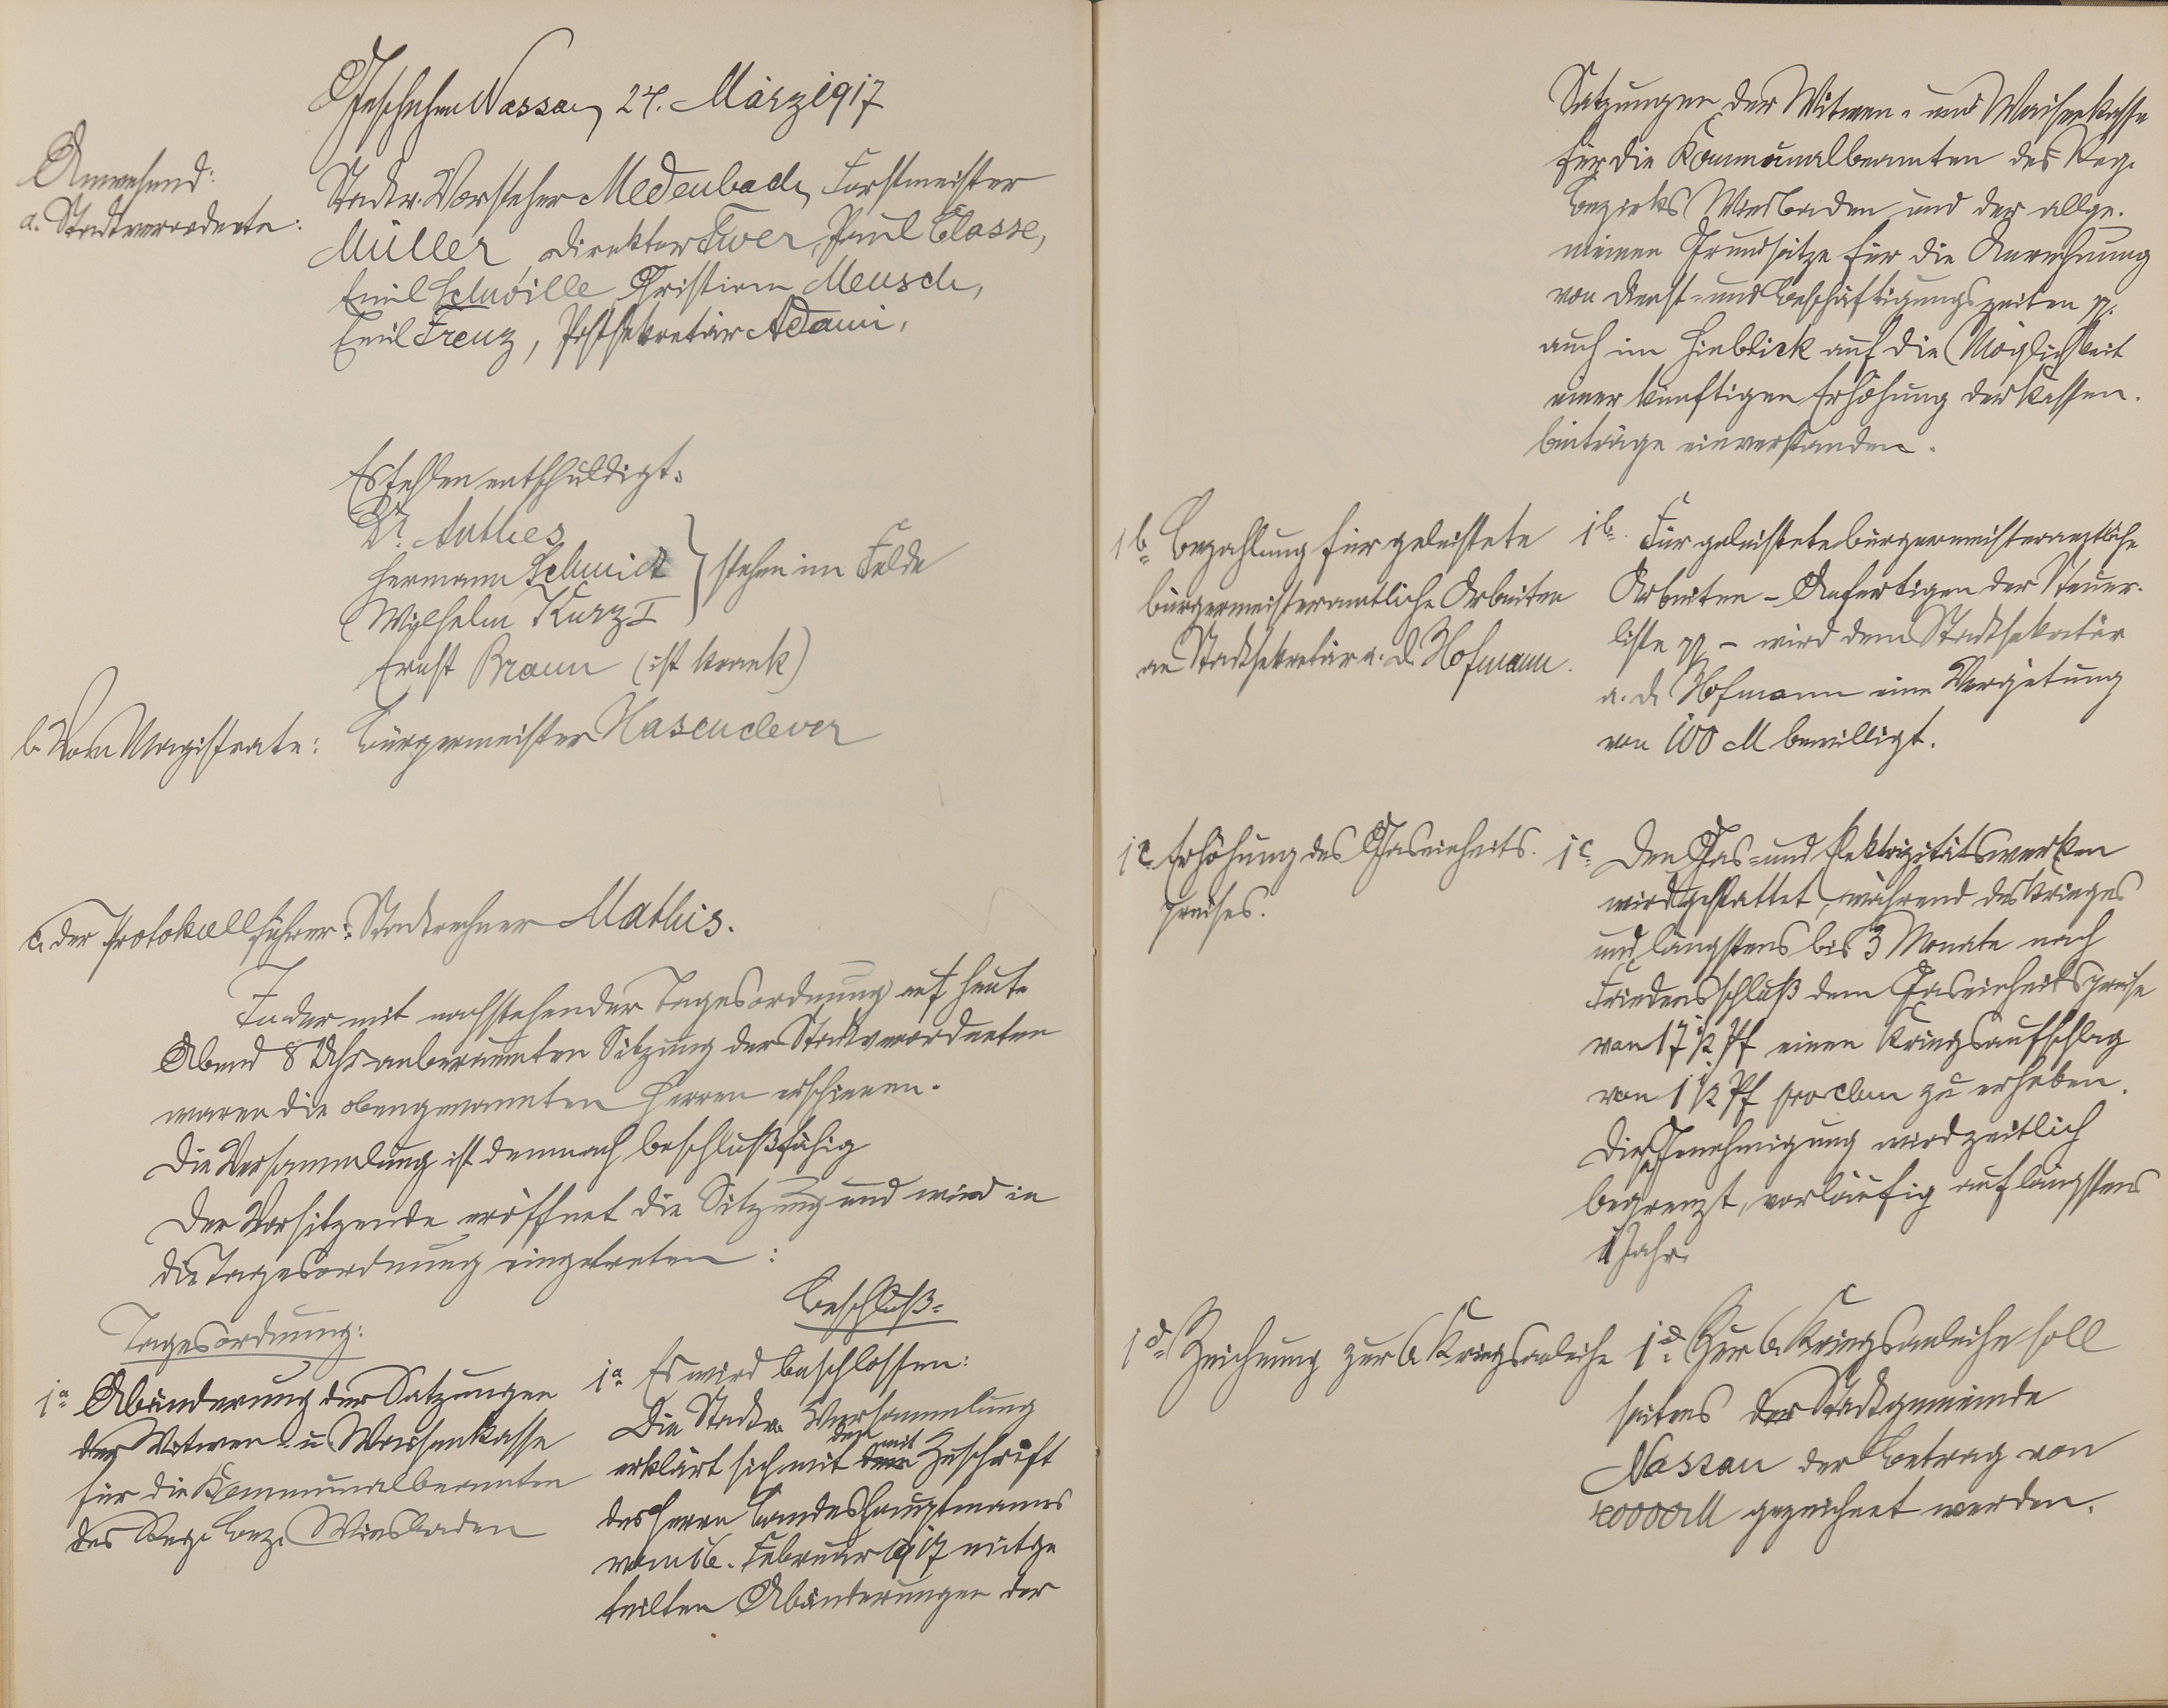 Geschehen Nassau, 24. März 1917
Anwesend:
a. Stadtverordnete:
Stadtv. Vorsteher Medenbach, Forstmeister
Müller, Direktor Twer, Paul Classe,
Emil Schwille, Christian Meusch,
Emil Trenz, Postsekretär Adami,
Es fehlen entschuldigt:
Dr. Anthes
Hermann Schmidt } stehen im Felde
Wilhelm Kurz I
Ernst Braun (ist krank)
b. Vom Magistrate: Bürgermeister Hasenclever
c. der Protokollführer: Stadtrechner Mathis.
In der mit nachstehender Tagesordnung auf heute
Abend 8 Uhr anberaumten Sitzung der Stadtverordneten
waren die obengenannten Herren erschienen.
Die Versammlung ist demnach beschlußfähig
Der Vorsitzende eröffnet die Sitzung und wird in
die Tagesordnung eingetreten:
Tagesordnung:
1a. Abänderung der Satzungen
der Witwen- u Waisenkasse
für die Kommunalbeamten
des Reg. Bez. Wiesbaden
Beschluß:
1a. Es wird beschlossen:
Die Stadtv. Versammlung
erklärt sich mit den mit Zuschrift
des Herrn Landeshauptmanns
vom 16. Februar 1917 mitge
teilten Abänderungen der
Satzungen der Witwen- und Waisenkasse
für die Kommunalbeamten des Reg.
Bezirks Wiesbaden und der allge-
meinen Grundsätze für die Anrechnung
von Dienst- und Beschäftigungszeiten pp.
auch im Hinblick auf die Möglichkeit
einer künftigen Erhöhung der Kassen-
beiträge einverstanden.
1b. Bezahlung für geleistete
bürgermeisteramtliche Arbeiten
an Stadtsekretär a. D. Hofmann.
1b. Für geleistete bürgermeisteramtliche
Arbeiten – Anfertigen der Steuer-
liste pp – wird dem Stadtsekretär
a. D. Hofmann eine Vergütung
von 100 M bewilligt.
1c. Erhöhung des Gaseinheits-
preises.
1c. Den Gas- und Elektrizitätswerken
wird gestattet, während des Krieges
und längstens bis 3 Monate nach
Friedensschluß dem Gaseinheitspreise
von 17 1/2 Pf einen Kriegsaufschlag
von 1 1/2 Pf pro cbm zu erheben.
Diese Genehmigung wird zeitlich
begrenzt, vorläufig auf längstens
1 Jahr.
1d. Zeichnung zur 6. Kriegsanleihe
1d. Zur 6. Kriegsanleihe soll
seitens der Stadtgemeinde
Nassau der Betrag von
M gezeichnet werden.